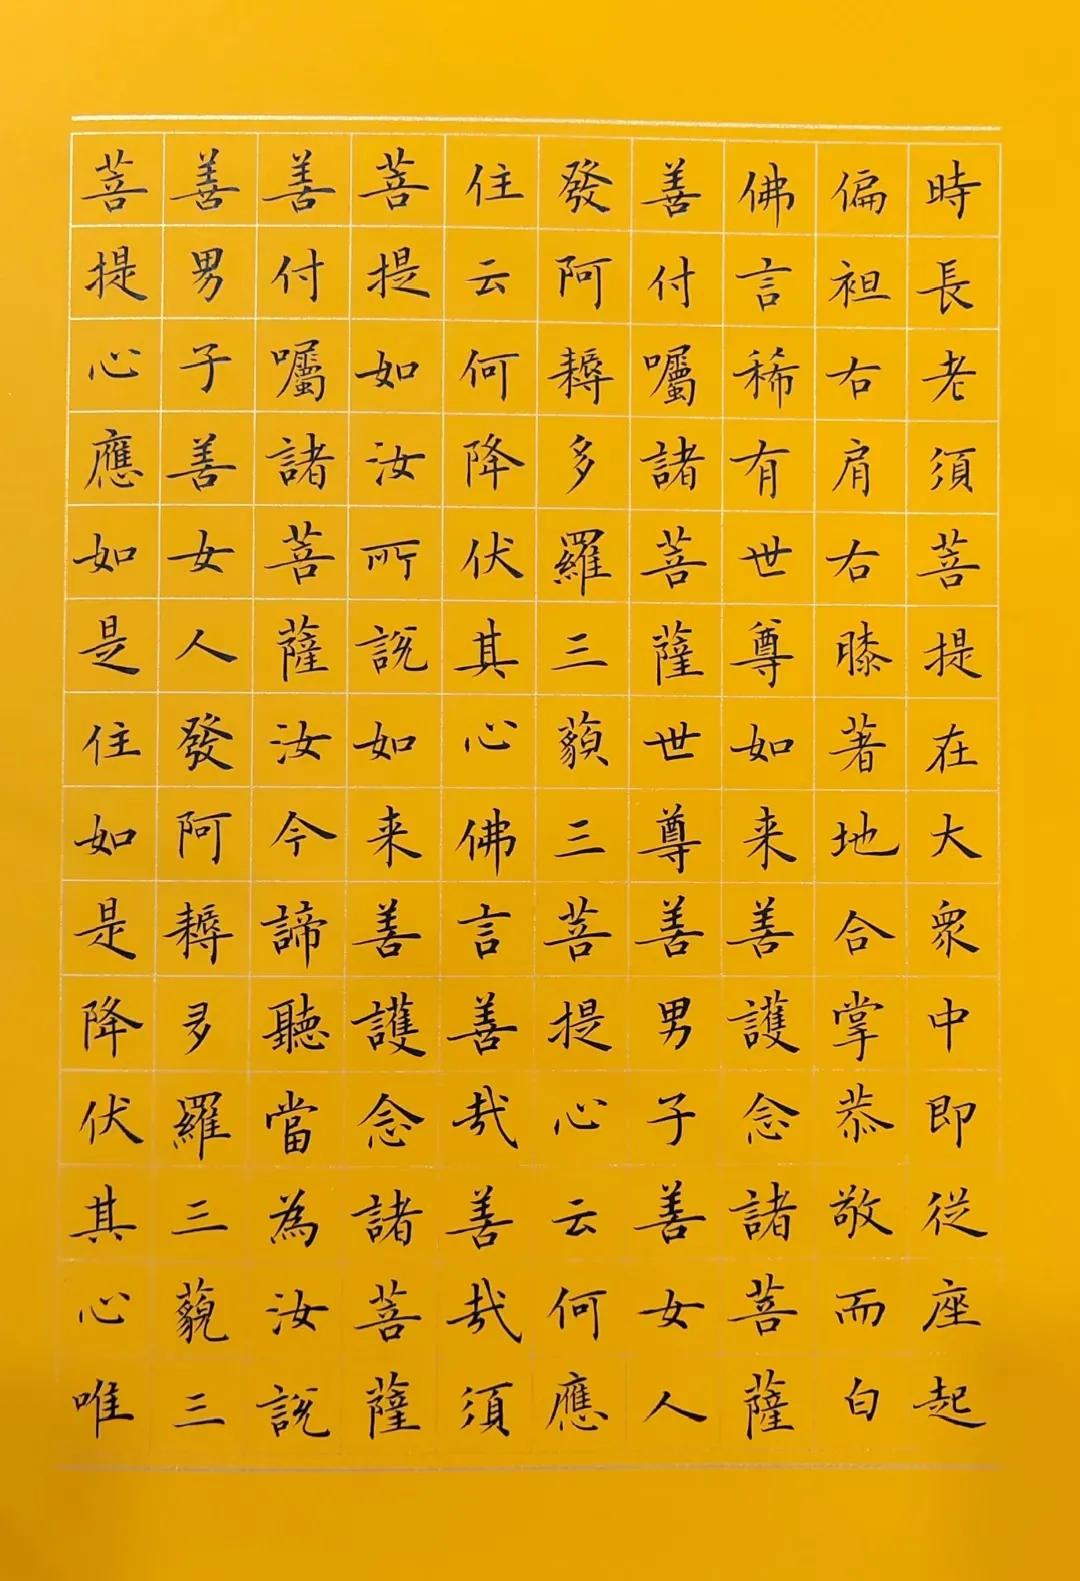 時長老須菩提在大衆中即從座起
偏袒右肩右膝著地合掌恭敬而白
佛言稀有世尊如来善護念諸菩薩
善付囑諸菩薩世尊善男子善女人
發阿耨多羅三藐三菩提心云何應
住云何降伏其心佛言善哉善哉須
菩提如汝所説如来善護念諸菩薩
善付囑諸菩薩汝今諦聽當為汝説
善男子善女人發阿耨多羅三藐三
菩提心應如是住如是降伏其心唯